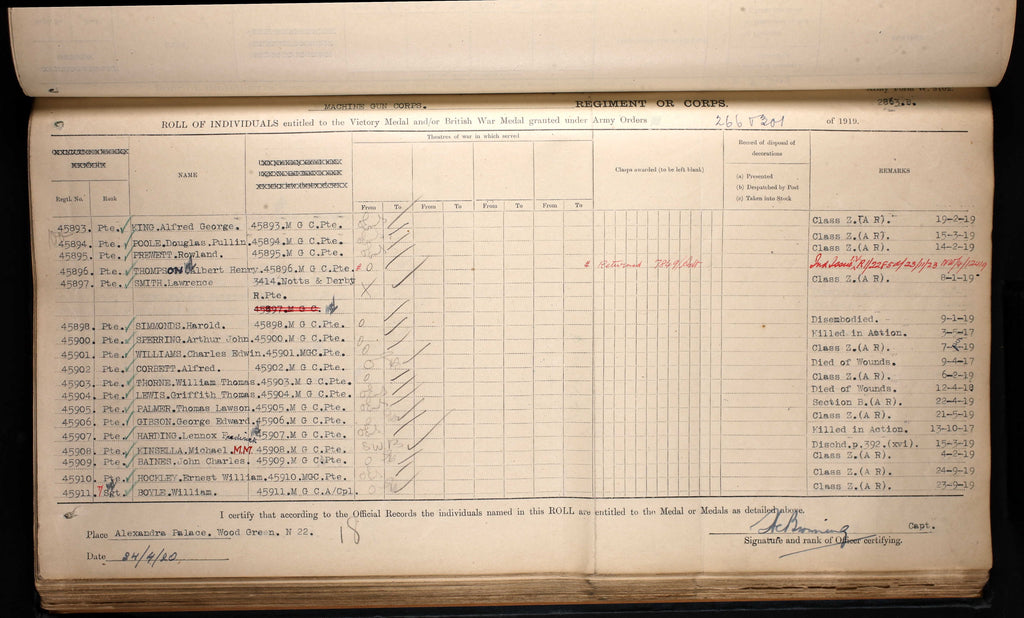 MACHINE GUN CORPS. REGIMENT OR CORPS.
2863.B.
ROLL OF INDIVIDUALS entitled to the Victory Medal and/or British War Medal granted under Army Orders 266 & 301 of 1919.
Theatres of war in which served
Record of disposal of decorations
NAME
Clasps awarded (to be left blank)
(a) Presented
REMARKS
(b) Despatched by Post
Regtl. No. Rank
(c) Taken into Stock
From To From To From To From To
45893. Pte. KING.Alfred George. 45893.M G C.Pte. Class Z.(A R). 19-2-19
45894. Pte. POOLE.Douglas.Pullin. 45894.M G C.Pte. Class Z.(A R). 15-3-19
45895. Pte. PREWETT.Rowland. 45895.M G C.Pte. Class Z.(A R). 14-2-19
45896. Pte. THOMPSON Albert Henry. 45896.M G C.Pte. Returned
45897. Pte. SMITH.Lawrence 3414.Notts & Derby Class Z.(A R). 8-1-19
R.Pte.
45897.M G C.
45898. Pte. SIMMONDS.Harold. 45898.M G C.Pte. Disembodied. 9-1-19
45900. Pte. SPERRING.Arthur John. 45900.M G C.Pte. Killed in Action. 3-5-17
45901. Pte. WILLIAMS.Charles Edwin. 45901.MGC.Pte. Class Z.(A R).
45902 Pte. CORBETT.Alfred. 45902.M G C.Pte. Died of Wounds. 9-4-17
45903. Pte. THORNE.William Thomas. 45903.M G C.Pte. Class Z.(A R). 6-2-19
45904. Pte. LEWIS.Griffith Thomas. 45904.M G C.Pte. Died of Wounds. 12-4-18
45905. Pte. PALMER.Thomas Lawson. 45905.M G C.Pte. Section B.(A R). 22-4-19
45906. Pte. GIBSON.George Edward. 45906.M G C.Pte. Class Z.(A R). 21-5-19
45907. Pte. HARDING.Lennox 45907.M G C.Pte. Killed in Action. 13-10-17
45908. Pte. KINSELLA.Michael. M.M. 45908.M G C.Pte. Dischd.p.392.(xvi). 15-3-19
45909. Pte. HAINES.John Charles. 45909.M G C.Pte. Class Z.(A R). 4-2-19
45910. Pte. HOCKLEY.Ernest William. 45910.MGC.Pte. Class Z.(A R). 24-9-19
45911. Sgt. BOYLE.William. 45911.M G C.A/Cpl. Class Z.(A R). 23-9-19
I certify that according to the Official Records the individuals named in this ROLL are entitled to the Medal or Medals as detailed above.
Place Alexandra Palace. Wood Green. N 22. 18 Capt.
Signature and rank of Officer certifying.
Date 24/4/20.